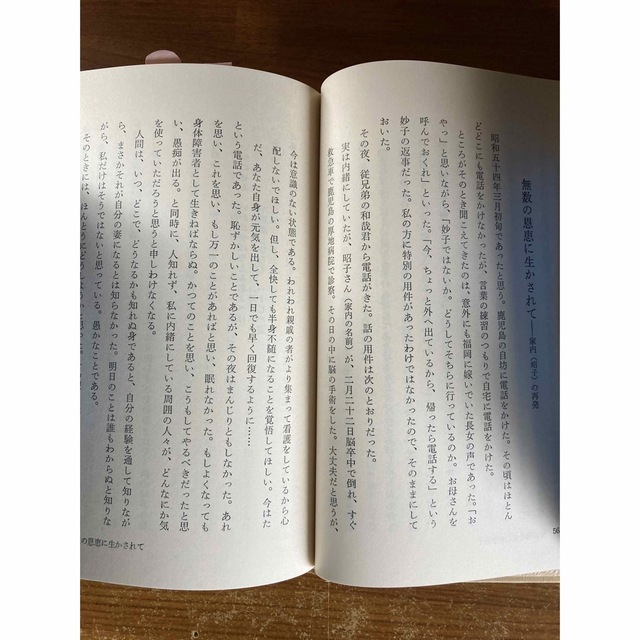 無数の恩恵に生かされて——家内(昭子)の再発
昭和五十四年三月初旬であったと思う。鹿児島の自坊に電話をかけた。その頃はほとん
どどこにも電話をかけなかったが、言葉の練習のつもりで自宅に電話をかけた。
ところがそのとき聞こえてきたのは、意外にも福岡に嫁いでいた長女の声であった。「お
やっ」と思いながら、「妙子ではないか。どうしてそちらに行っているのか。お母さんを
呼んでおくれ」といった。「今、ちょっと外へ出ているから、帰ったら電話する」という
妙子の返事だった。私の方に特別の用件があったわけではなかったので、そのままにして
おいた。
その夜、従兄弟の和哉君から電話がきた。話の用件は次のとおりだった。
実は内緒にしていたが、昭子さん(家内の名前)が、二月二十二日脳卒中で倒れ、すぐ
救急車で鹿児島の厚地病院で診察。その日の中に脳の手術をした。大丈夫だと思うが、
56
今は意識のない状態である。われわれ親戚の者がより集まって看護をしているから心
配しないでほしい。但し、全快しても半身不随になることを覚悟してほしい。今はた
だ、あなた自身が元気を出して、一日でも早く回復するように……
という電話であった。恥ずかしいことであるが、その夜はまんじりともしなかった。あれ
を思い、これを思い、もし万一のことがあればと思い、眠れなかった。もしよくなっても
身体障害者として生きねばならぬ。かつてのことを思い、こうもしてやるべきだったと思
い、愚痴が出る。と同時に、人知れず、私に内緒にしている周囲の人々が、どんなにか気
を使っていただろうと思うと申しわけなくなる。
人間は、いつ、どこで、どうなるかも知れぬ身であると、自分の経験を通して知りなが
ら、まさかそれが自分の妻になるとは知らなかった。明日のことは誰もわからぬと知りな
がら、私だけはそうではないと思っている。愚かなことである。
の恩恵に生かされて